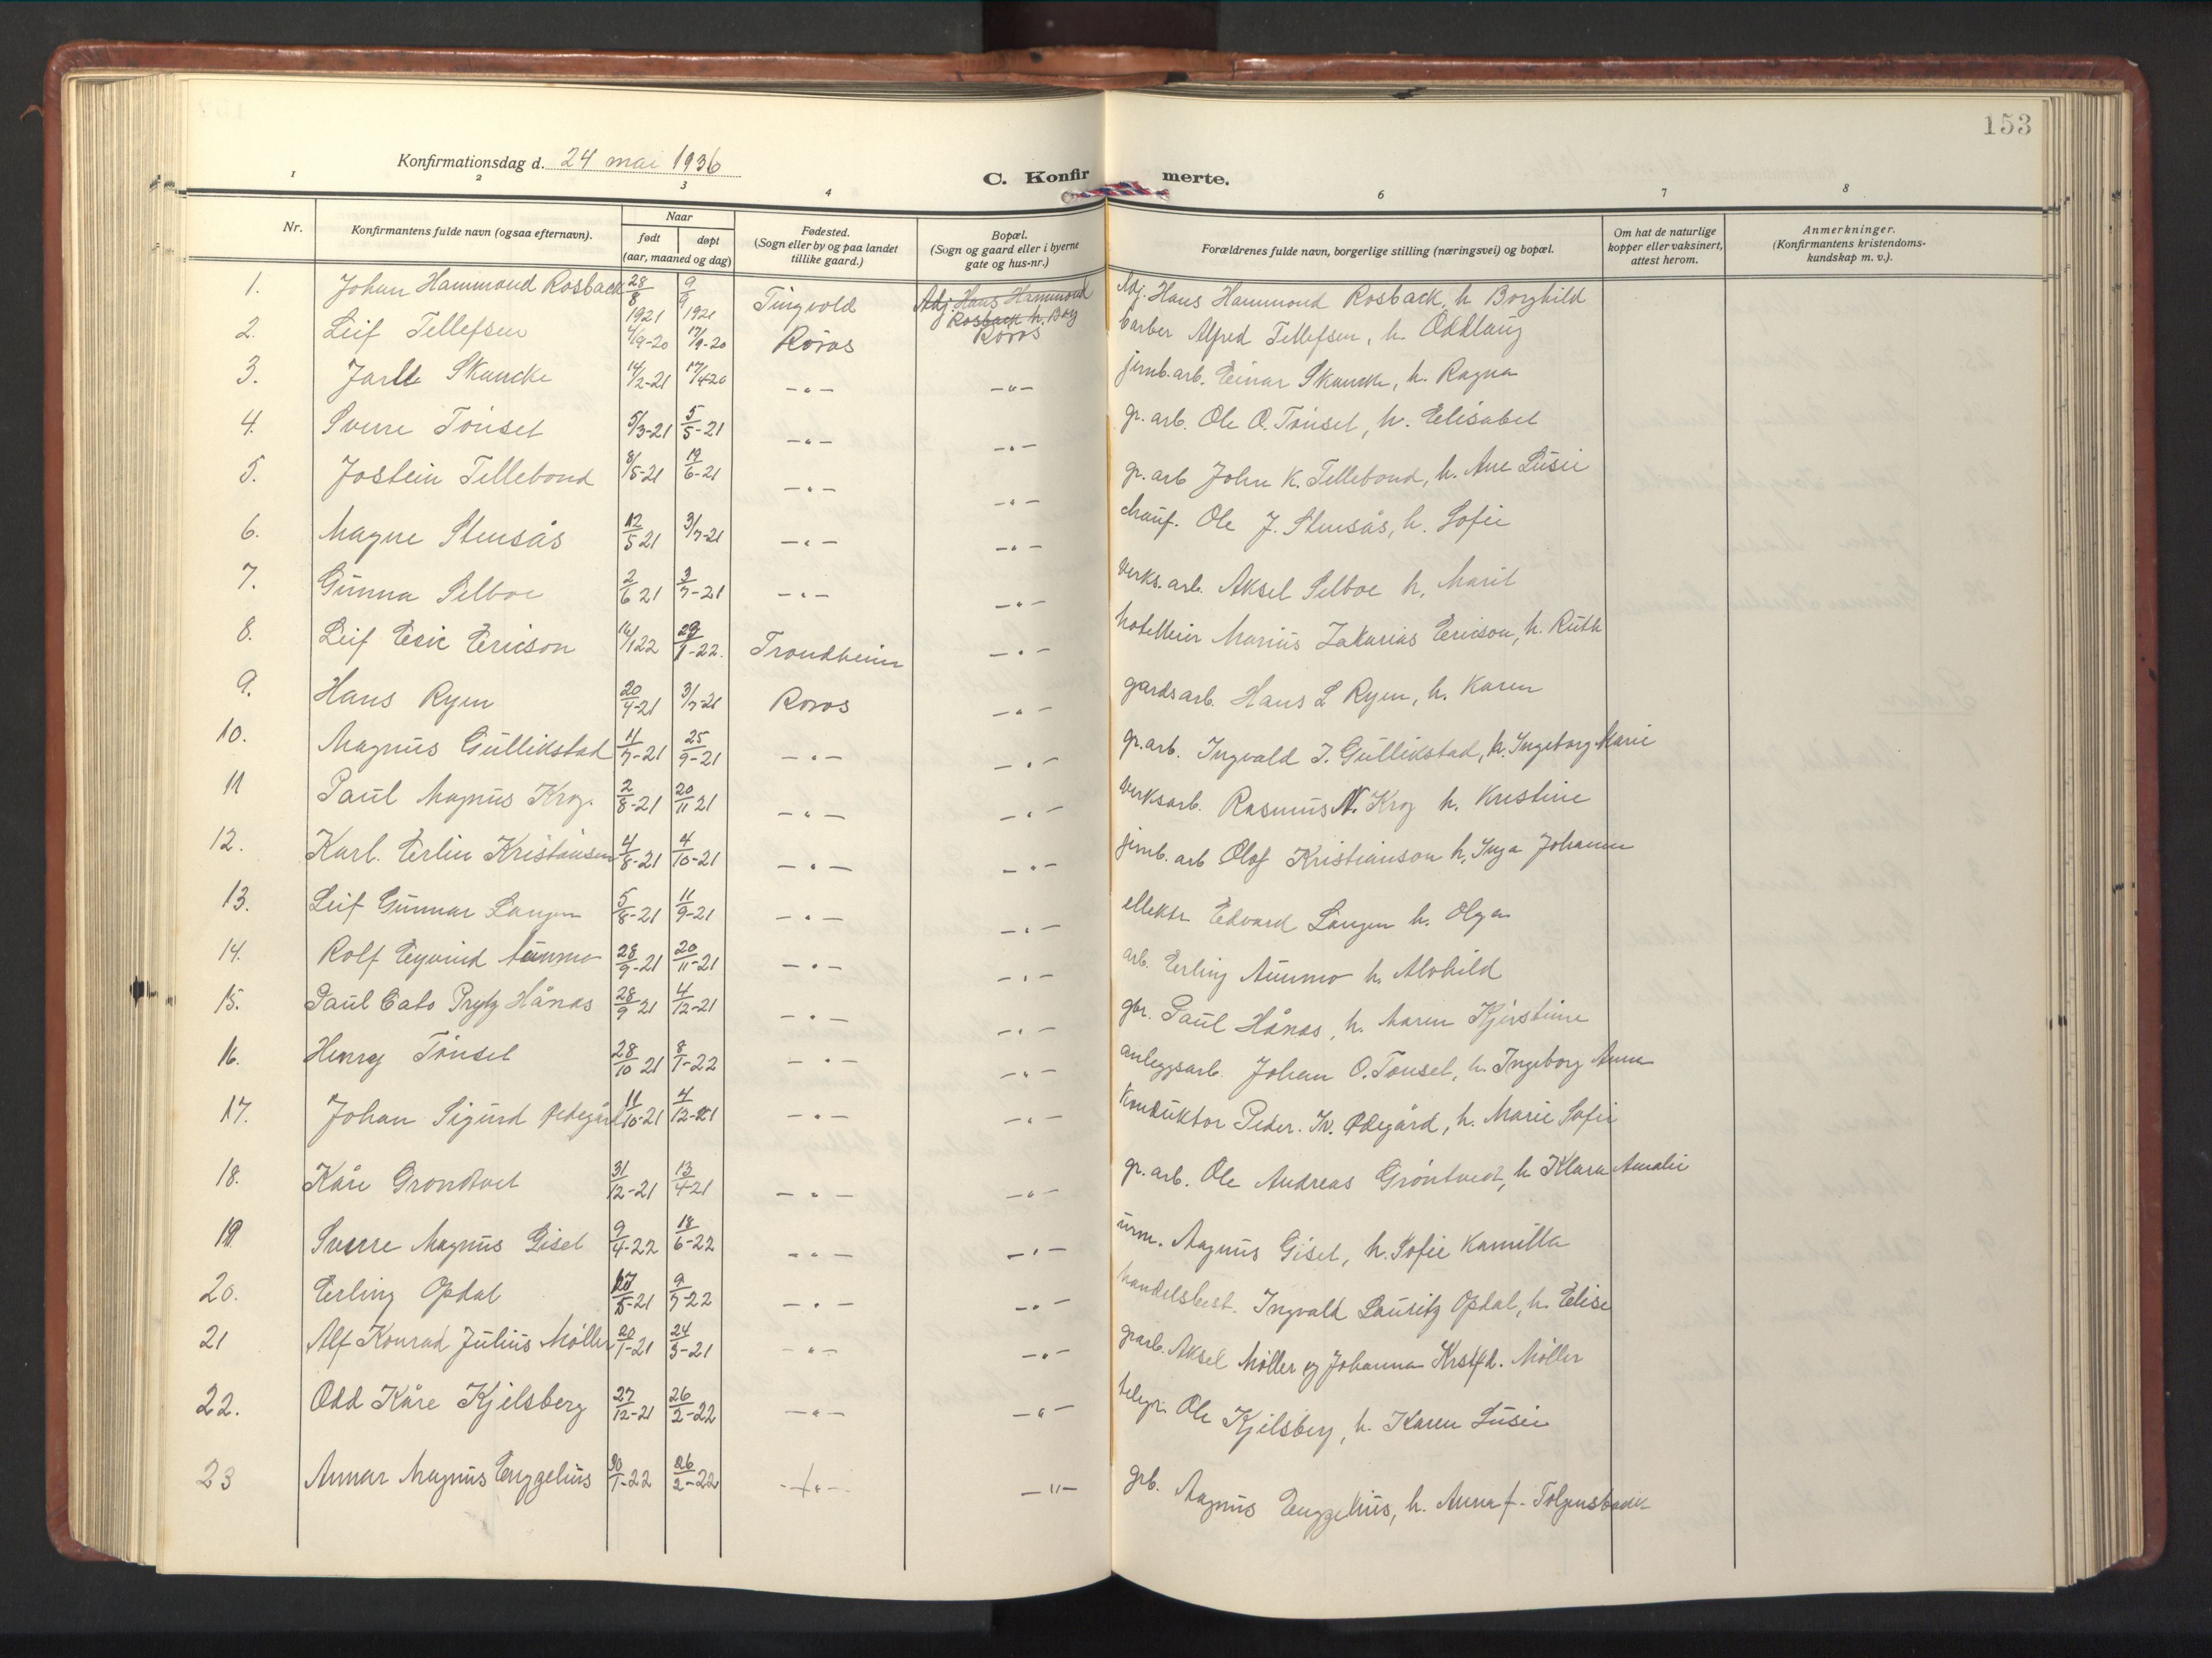 153
Konfirmationsdag d. 24 mai 1936
C. Konfirmerte.
1 2 3 4 6 7 8
Nr. Konfirmantens fulde navn (ogsaa efternavn). Naar født døpt (aar, maaned og dag) Fødested. (Sogn eller by og paa landet tillike gaard.) Bopæl. (Sogn og gaard eller i byerne gate og hus-nr.) Forældrenes fulde navn, borgerlige stilling (næringsvei) og bopæl. Om hat de naturlige kopper eller vaksinert, attest herom. Anmerkninger. (Konfirmantens kristendoms-kundskap m. v.).
1. Johan Hammond Rosback 28/8 1921 9/9 1921 Tingvold Adj. Hans Hammond Rosback h. Borg Adj. Hans Hammond Rosback, h Borghild
2. Leif Tellefsen 4/9-20 17/9-20 Röros Röros barber Alfred Tellefsen, h. Oddlaug
3. Jarle Skancke 14/2-21 17/4 20 -"- -"- jernb.arb. Einar Skancke, h. Ragna
4. Sverre Tönset 5/3-21 5/5-21 -"- -"- gr. arb. Ole O. Tönset, h. Elisabet
5. Jostein Tellebond 8/5-21 19/6-21 -"- -"- gr. arb John K. Tellebond, h. Ane Lusie
6. Magne Stensås 12/5 21 3/7-21 -"- -"- chauf. Ole J. Stensås, h. Sofie
7. Gunna Selboe 2/6 21 3/7-21 -"- -"- verks.arb. Aksel Selboe h. Marit
8. Leif Eric Ericson 16/1 22 29/1-22. Trondheim -"- hotelleier Marius Zakarias Ericson, h. Ruth
9. Hans Ryen 20/4-21 3/7-21 Roros -"- gardsarb. Hans L Ryen, h. Karen
10. Magnus Gullikstad 11/7-21 25/9-21 -"- -"- gr.arb. Ingvald J. Gullikstad, h. Ingeborg Marie
11 Paul Magnus Krog. 2/8-21 20/11 21 -"- -"- verksarb. Rasmus N. Krog h. Kristine
12. Karl. Erlin Kristiansen 4/8-21 4/10-21 -"- -"- jernb. arb Olof Kristianson h, Inga Johanne
13. Leif Gunnar Langen 5/8-21 11/9-21 -"- -"- elektr Edvard Langen h. Olga
14. Rolf Eyvind Aunmo 28/9-21 20/11-21 -"- -"- arb. Erling Aunmo h. Alvhild
15. Paul Cato Prytz Hånes 28/9 21 4/12-21 -"- -"- gbr. Paul Hånes, h. Maren Kjerstine
16. Henry Tönset 28/10 21 8/1-22 -"- -"- anleggsarb. Johan O. Tonset, h. Ingeborg Anna
17. Johan Sigurd Ødegård 11/10-21 4/12-21 -"- -"- Konduktor Peder. Iv. Ødegård, h. Marie Sofie
18. Kåre Grondtvet 31/12-21 13/4-21 -"- -"- gr. arb. Ole Andreas Gröntvedt, h Klara Amalie
19 Sverre Magnus Gisel 9/4-22 18/6-22 -"- -"- urm. Magnus Gisel, h. Sofie Kamilla
20. Erling Opdal 17/5-21 9/7-22 -"- -"- handelsbest. Ingvald Lauritz Opdal, h. Elise
21 Alf Konrad Julius Møller 20/1-21 24/3-21 -"- -"- grarb. Aksel Møller og Johanna Möller
22. Odd Kåre Kjelsberg 27/12-21 26/2-22 -"- -"- telegr. Ole Kjelsberg, h. Karen Lusie
23 Annar Magnus Enggelius 30/1-22 26/2-22 -"- -"- grb. Magnus Enggelius, h. Anna f.